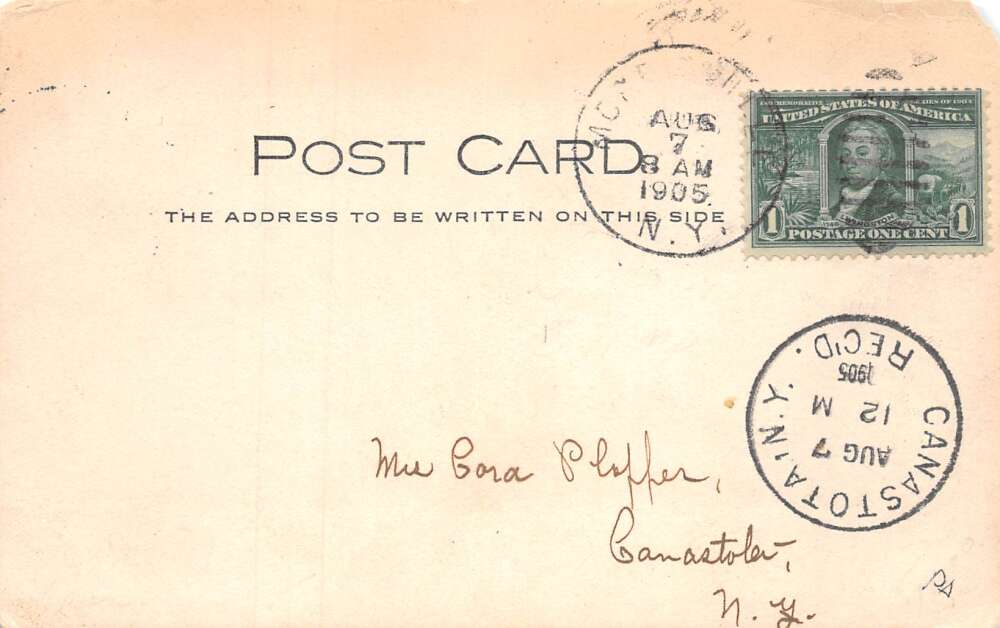 POST CARD
THE ADDRESS TO BE WRITTEN ON THIS SIDE
AUG
7
8 AM
1905
N.Y.
COMMEMORATIVE SERIES OF 1904
UNITED STATES OF AMERICA
LIVINGSTON
1 POSTAGE ONE CENT 1
CANASTOTA, N.Y.
AUG 7
12 M
1905
REC'D.
Cora Plopper,
Canastota,
N. Y.